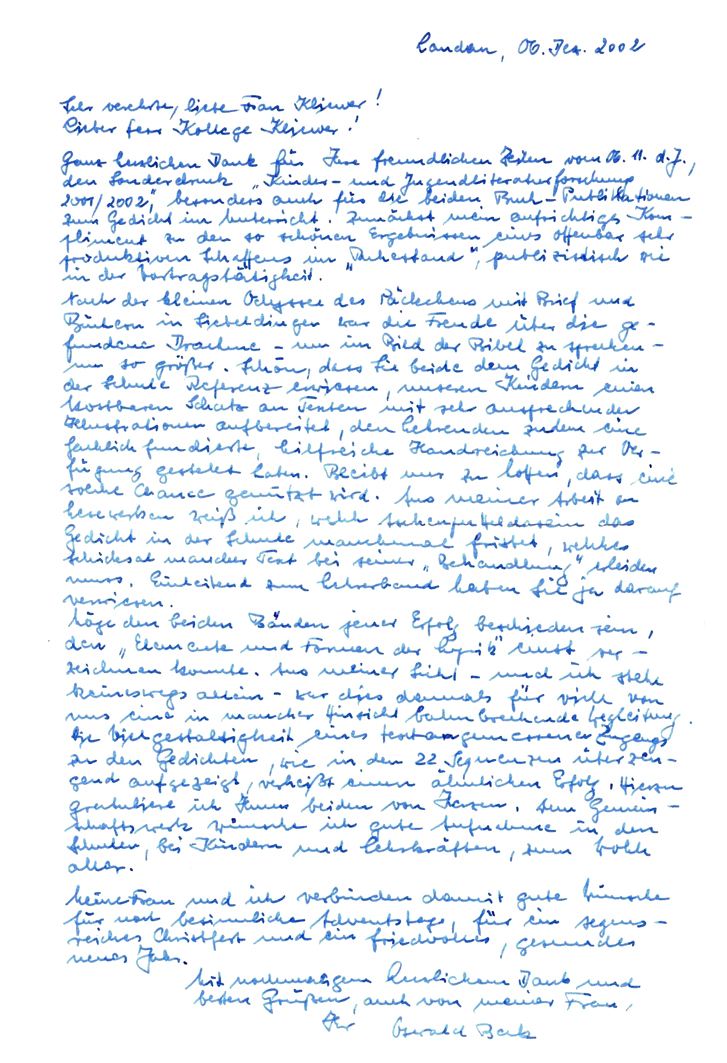 Landau, 06. Dez. 2002
Sehr verehrte, liebe Frau Kliewer!
Lieber Herr Kollege Kliewer!
Ganz herzlichen Dank für Ihre freundlichen Zeilen vom 06. 11. d. J.,
den Sonderdruck "Kinder- und Jugendliteraturforschung
2001/2002", besonders auch für die beiden Buch-Publikationen
zum Gedicht im Unterricht. Zunächst mein aufrichtiges Kom-
pliment zu den so schönen Ergebnissen eines offenbar sehr
produktiven Schaffens im "Ruhestand", publizistisch wie
in der Vortragstätigkeit.
Nach der kleinen Odyssee des Päckchens mit Brief und
Büchern in Siebeldingen war die Freude über die ge-
fundene Drachme - um im Bild der Bibel zu sprechen -
um so größer. Schön, dass Sie beide dem Gedicht in
der Schule Referenz erwiesen, unseren Kindern einen
kostbaren Schatz an Texten mit sehr ansprechender
Illustrationen aufbereitet, den Lehrenden zudem eine
fachlich fundierte, hilfreiche Handreichung zur Ver-
fügung gestellt haben. Bleibt nur zu hoffen, dass eine
solche Chance genützt wird. Aus meiner Arbeit an
Lesewerken weiß ich, welch Aschenputteldasein das
Gedicht in der Schule manchmal fristet, welches
Schicksal mancher Text bei seiner "Behandlung" erleiden
muss. Einleitend zum Lehrerband haben Sie ja darauf
verwiesen.
Möge den beiden Bänden jener Erfolg beschieden sein,
den "Elemente und Formen der Lyrik" einst ver-
zeichnen konnte. Aus meiner Sicht - und ich stehe
keineswegs allein - war dies damals für viele von
uns eine in mancher Hinsicht bahnbrechende Wegleitung.
Die Vielgestaltigkeit eines textangemessenen Zugangs
zu den Gedichten, wie in den 22 Sequenzen überzeu-
gend aufgezeigt, verheißt einen ähnlichen Erfolg. Hierzu
gratuliere ich Ihnen beiden von Herzen. Dem Gemein-
schaftswerk wünsche ich gute Aufnahme in den
Schulen, bei Kindern und Lehrkräften, zum Wohle
aller.
Meine Frau und ich verbinden damit gute Wünsche
für noch besinnliche Adventstage, für ein segens-
reiches Christfest und ein friedvolles, gesundes
neues Jahr.
Mit nochmaligem herzlichem Dank und
besten Grüßen, auch von meiner Frau,
Ihr Oswald Beck